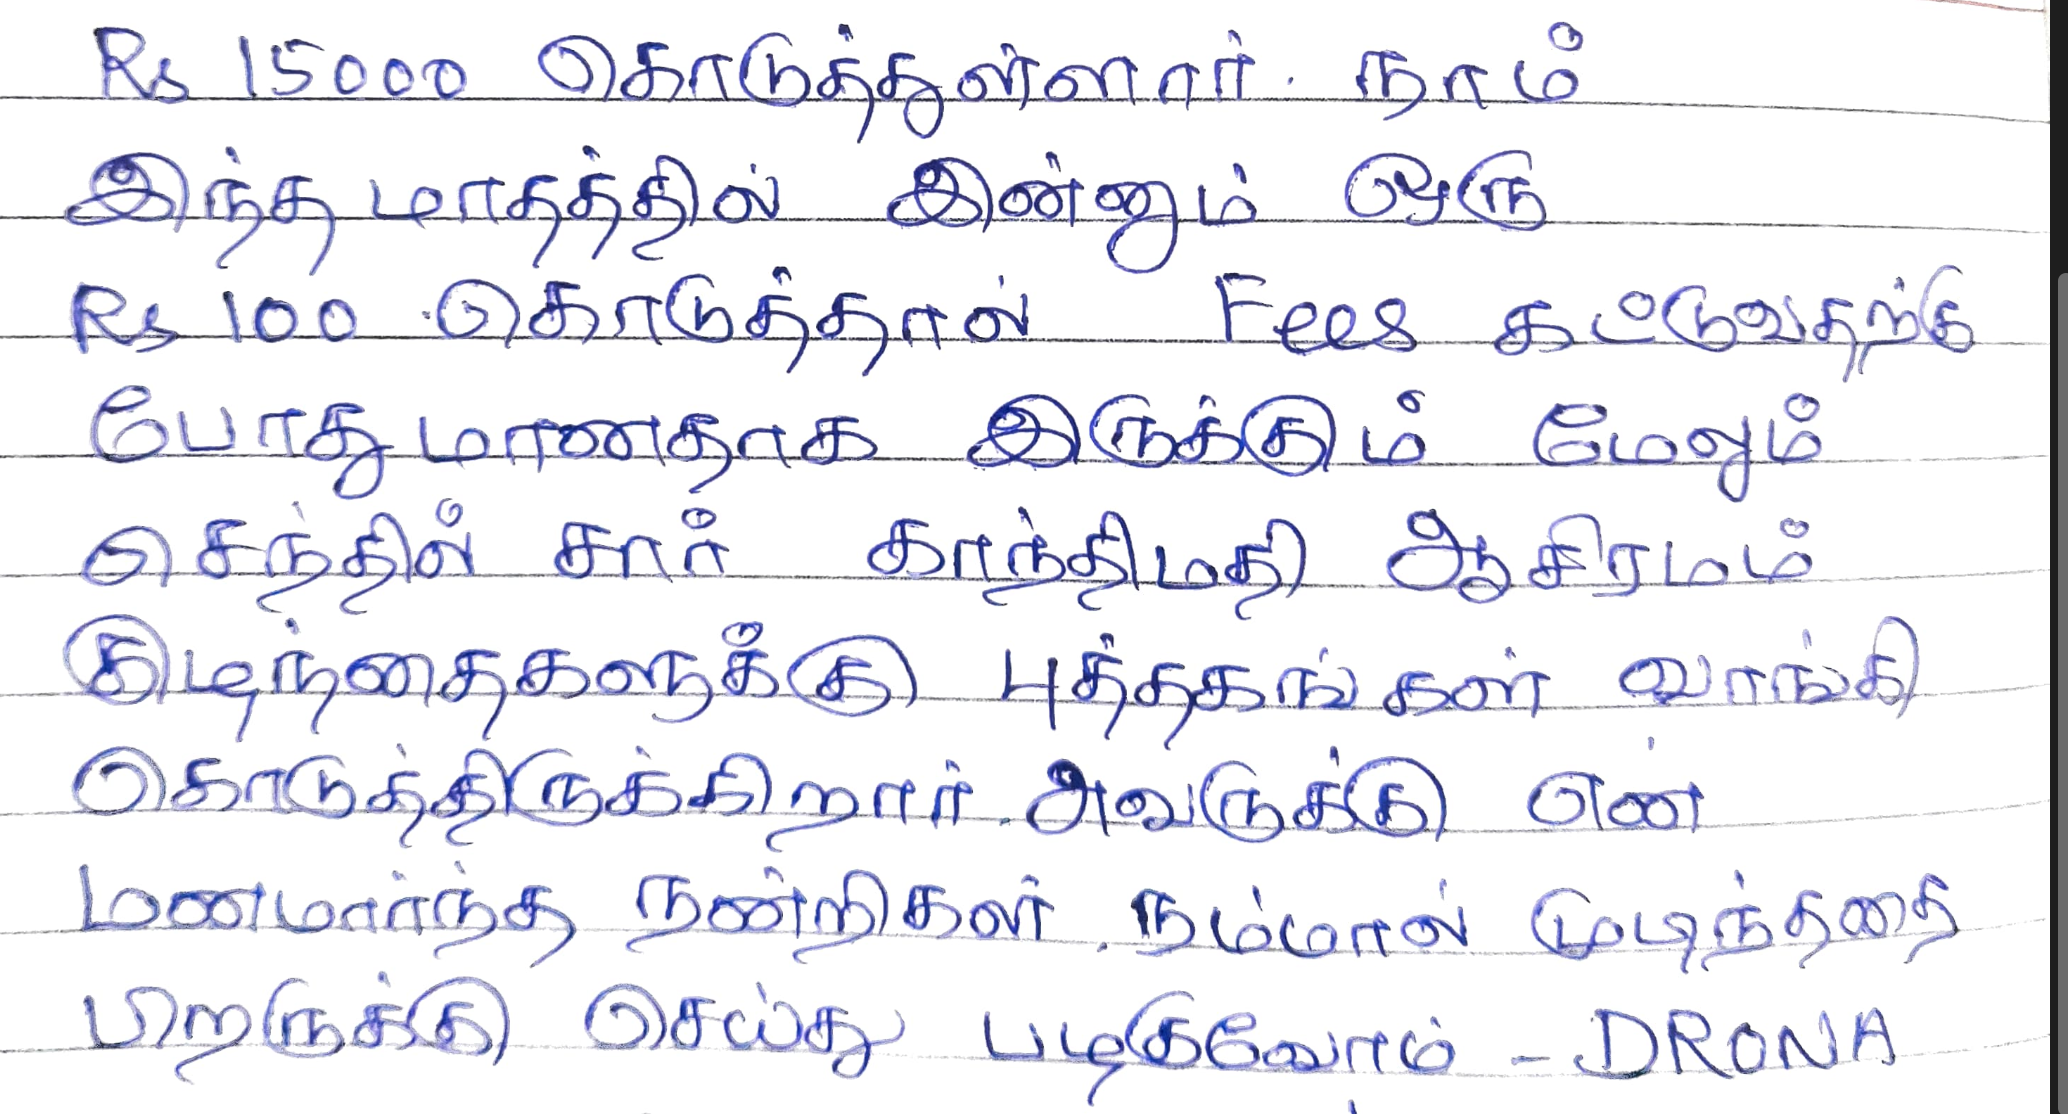 Rs 15000 கொடுத்துள்ளார். நாம்
இந்த மாதத்தில் இன்னும் ஒரு
Rs 100 கொடுத்தால் Fees கட்டுவதற்கு
போதுமானதாக இருக்கும் மேலும்
செந்தில் சார் காந்திமதி ஆசிரமம்
குடிந்தைகளுக்கு புத்தகங்கள் வாங்கி
கொடுத்திருக்கிறார். அவருக்கு என்
மணமார்ந்த நண்றிகள். நம்மால் முடிந்ததை
பிறருக்கு செய்து படிகுவோம் - DRONA